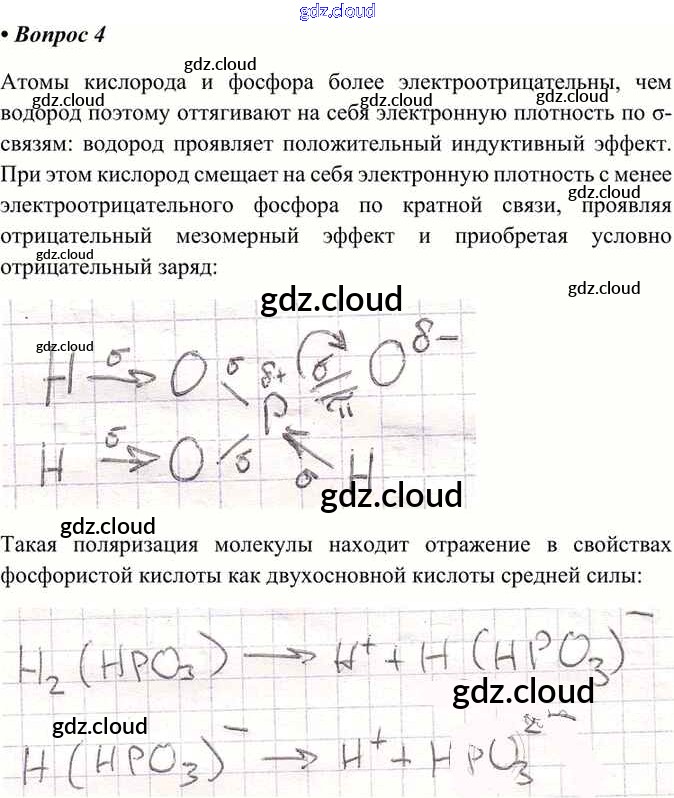 gdz.cloud
• Вопрос 4
gdz.cloud gdz.cloud
Атомы кислорода и фосфора более электроотрицательны, чем
gdz.cloud gdz.cloud
водород поэтому оттягивают на себя электронную плотность по σ-
связям: водород проявляет положительный индуктивный эффект.
При этом кислород смещает на себя электронную плотность с менее
gdz.cloud
электроотрицательного фосфора по кратной связи, проявляя
отрицательный мезомерный эффект и приобретая условно
gdz.cloud
отрицательный заряд:
gdz.cloud
gdz.cloud
gdz.cloud
H σ→ O σ δ+ σ O δ−
P π
H σ→ O σ σ H
gdz.cloud
gdz.cloud
Такая поляризация молекулы находит отражение в свойствах
фосфористой кислоты как двухосновной кислоты средней силы:
H₂(HPO₃) → H⁺ + H(HPO₃)⁻
gdz.cloud
gdz.cloud
H(HPO₃)⁻ → H⁺ + HPO₃²⁻
gdz.cloud